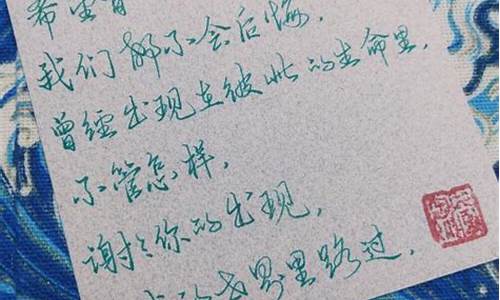 希望
我们都不会后悔,
曾经出现在彼此的生命里.
不管怎样,
谢谢你的出现,
世界里路过.